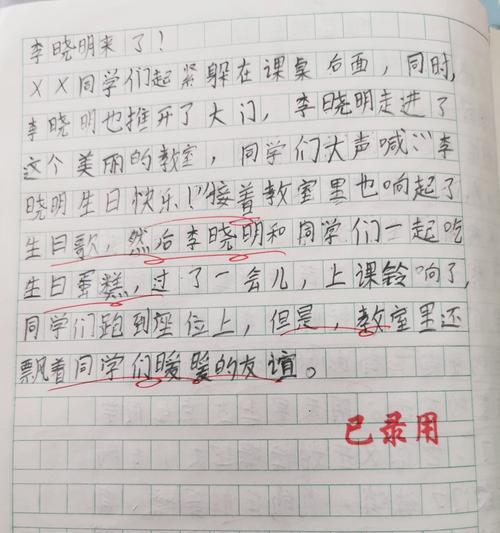 李晓明来了!
××同学们起紧躲在课桌后面,同时,
李晓明也推开了大门,李晓明走进了
这个美丽的教室,同学们大声喊:“李
晓明生日快乐!”接着教室里也响起了
生日歌,然后李晓明和同学们一起吃
生日蛋糕,过了一会儿,上课铃响了,
同学们跑到座位上,但是,教室里还
飘着同学们暖暖的友谊。
已录用